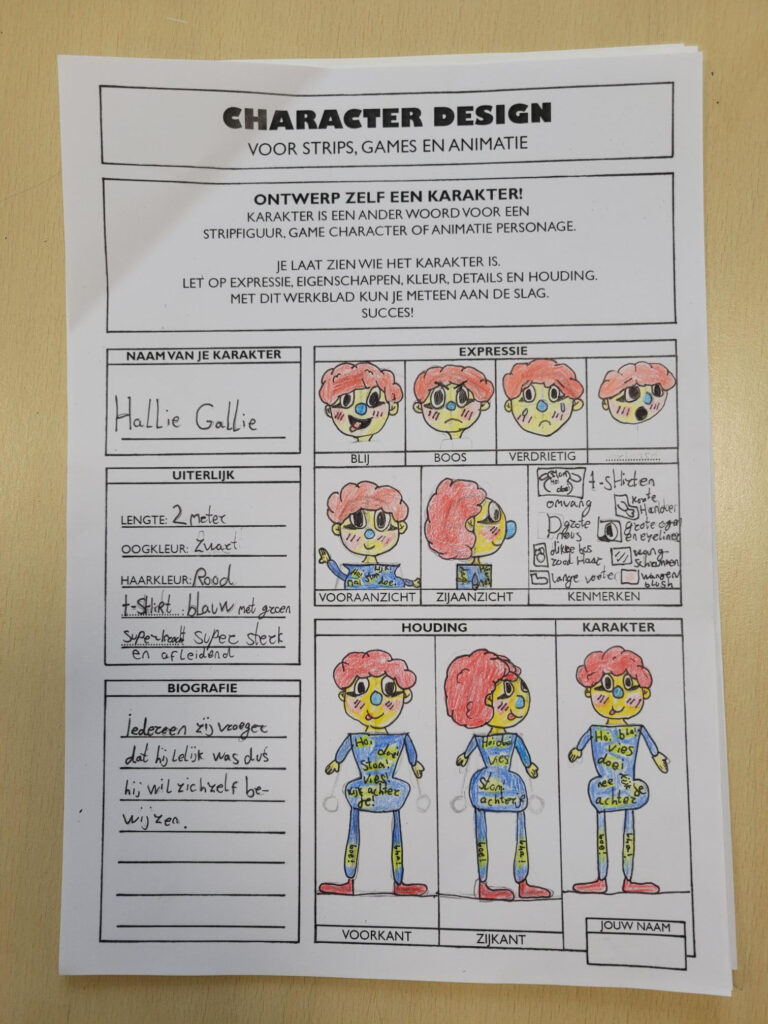 CHARACTER DESIGN
VOOR STRIPS, GAMES EN ANIMATIE
ONTWERP ZELF EEN KARAKTER!
KARAKTER IS EEN ANDER WOORD VOOR EEN
STRIPFIGUUR, GAME CHARACTER OF ANIMATIE PERSONAGE.
JE LAAT ZIEN WIE HET KARAKTER IS.
LET OP EXPRESSIE, EIGENSCHAPPEN, KLEUR, DETAILS EN HOUDING.
MET DIT WERKBLAD KUN JE METEEN AAN DE SLAG.
SUCCES!
NAAM VAN JE KARAKTER
Hallie Gallie
UITERLIJK
LENGTE: 2 meter
OOGKLEUR: Zwart
HAARKLEUR: Rood
t-shirt: blauw met groen
superkracht super sterk
en afleidend
BIOGRAFIE
iedereen zij vroeger
dat hij lelijk was dus
hij wil zichzelf be-
wijzen.
EXPRESSIE
BLIJ
BOOS
VERDRIETIG
VOORAANZICHT
ZIJAANZICHT
t-shirten
omvang
korte
Handen
grote
neus
grote ogen
en eyeliner
dikke bos
rood Haar
wang
lange voeten
wangen
blush
KENMERKEN
HOUDING
Hoi,
doei
Stom!
vies!
kijk achter
je!
boe!
bha!
VOORKANT
Hoi doei
vies
Stom!
achter je
boe!
bha!
ZIJKANT
KARAKTER
Hoi, bla
vies
doei
nee kijk je
achter
boe!
bha!
JOUW NAAM